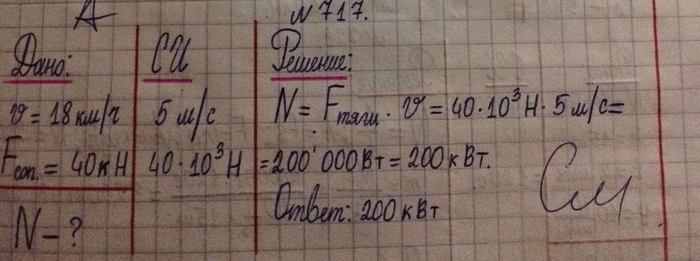 А
N 717.
Дано:
v = 18 км/ч
Fсоп. = 40 кН
N – ?
СИ
5 м/с
40·10³ Н
Решение:
N = Fтяги · v = 40·10³ Н · 5 м/с =
= 200'000 Вт = 200 кВт.
Ответ: 200 кВт
См